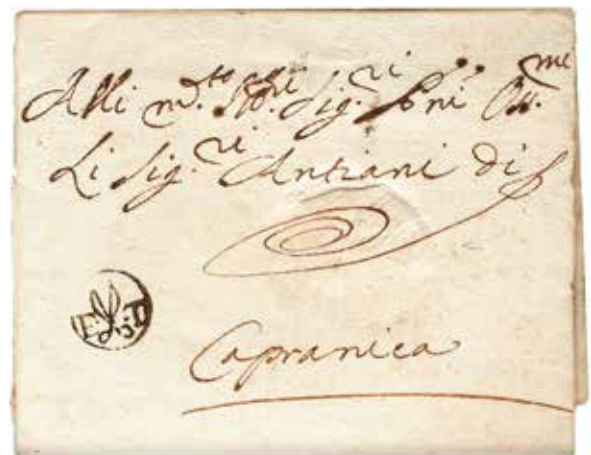 Alli m.to Ill.ri Sig.ri P.ni Oss.mi
Li Sig.ri Antiani di
Capranica